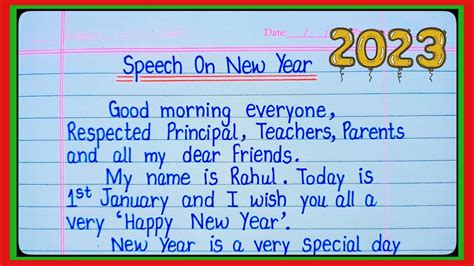 Date: / /
2023
Speech On New Year
Good morning everyone,
Respected Principal, Teachers, Parents
and all my dear friends.
My name is Rahul. Today is
1st January and I wish you all a
very 'Happy New Year'.
New Year is a very special day